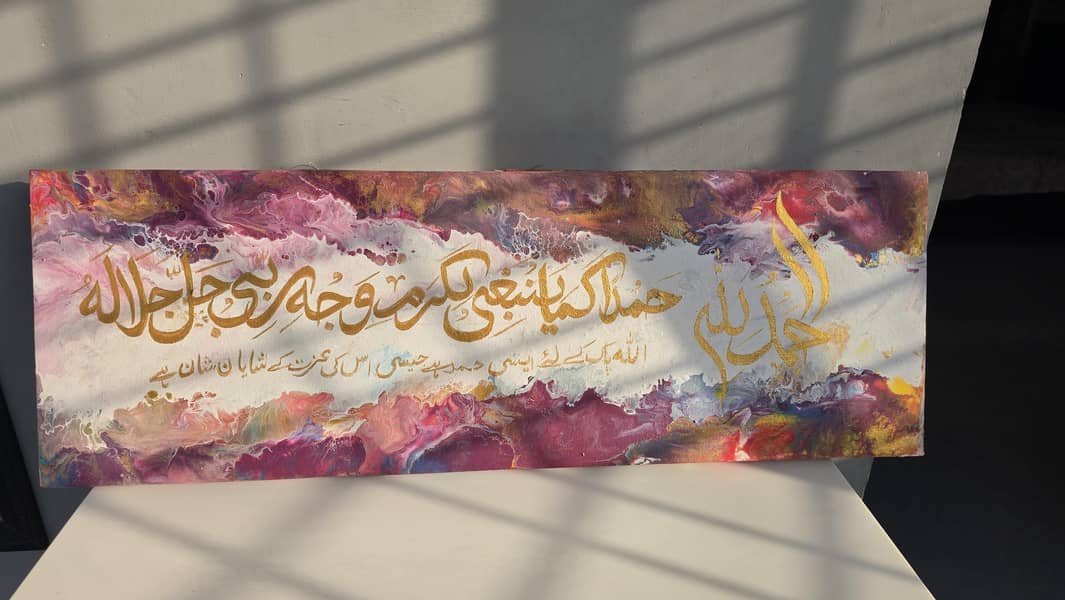 الحمد لله
حمدا کما ینبغی لکرم وجه ربی جل جلاله
اللہ پاک کے لئے ایسی حمد ہے جیسی اس کی عزت کے شایان شان ہے